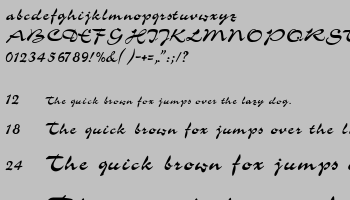 abcdefghijklmnopqrstuvwxyz
ABCDEFGHIJKLMNOPQRST
0123456789!%&( )-+=,,":;/?
12 The quick brown fox jumps over the lazy dog.
18 The quick brown fox jumps over the
24 The quick brown fox jumps